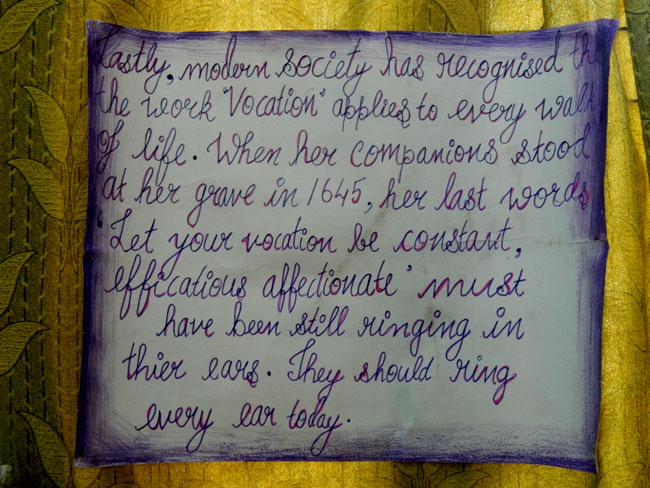 Lastly, modern society has recognised th
the work "Vocation" applies to every walk
of life. When her companions stood
at her grave in 1645, her last words
'Let your vocation be constant,
efficatious affectionate' must
have been still ringing in
thier ears. They should ring
every ear today.